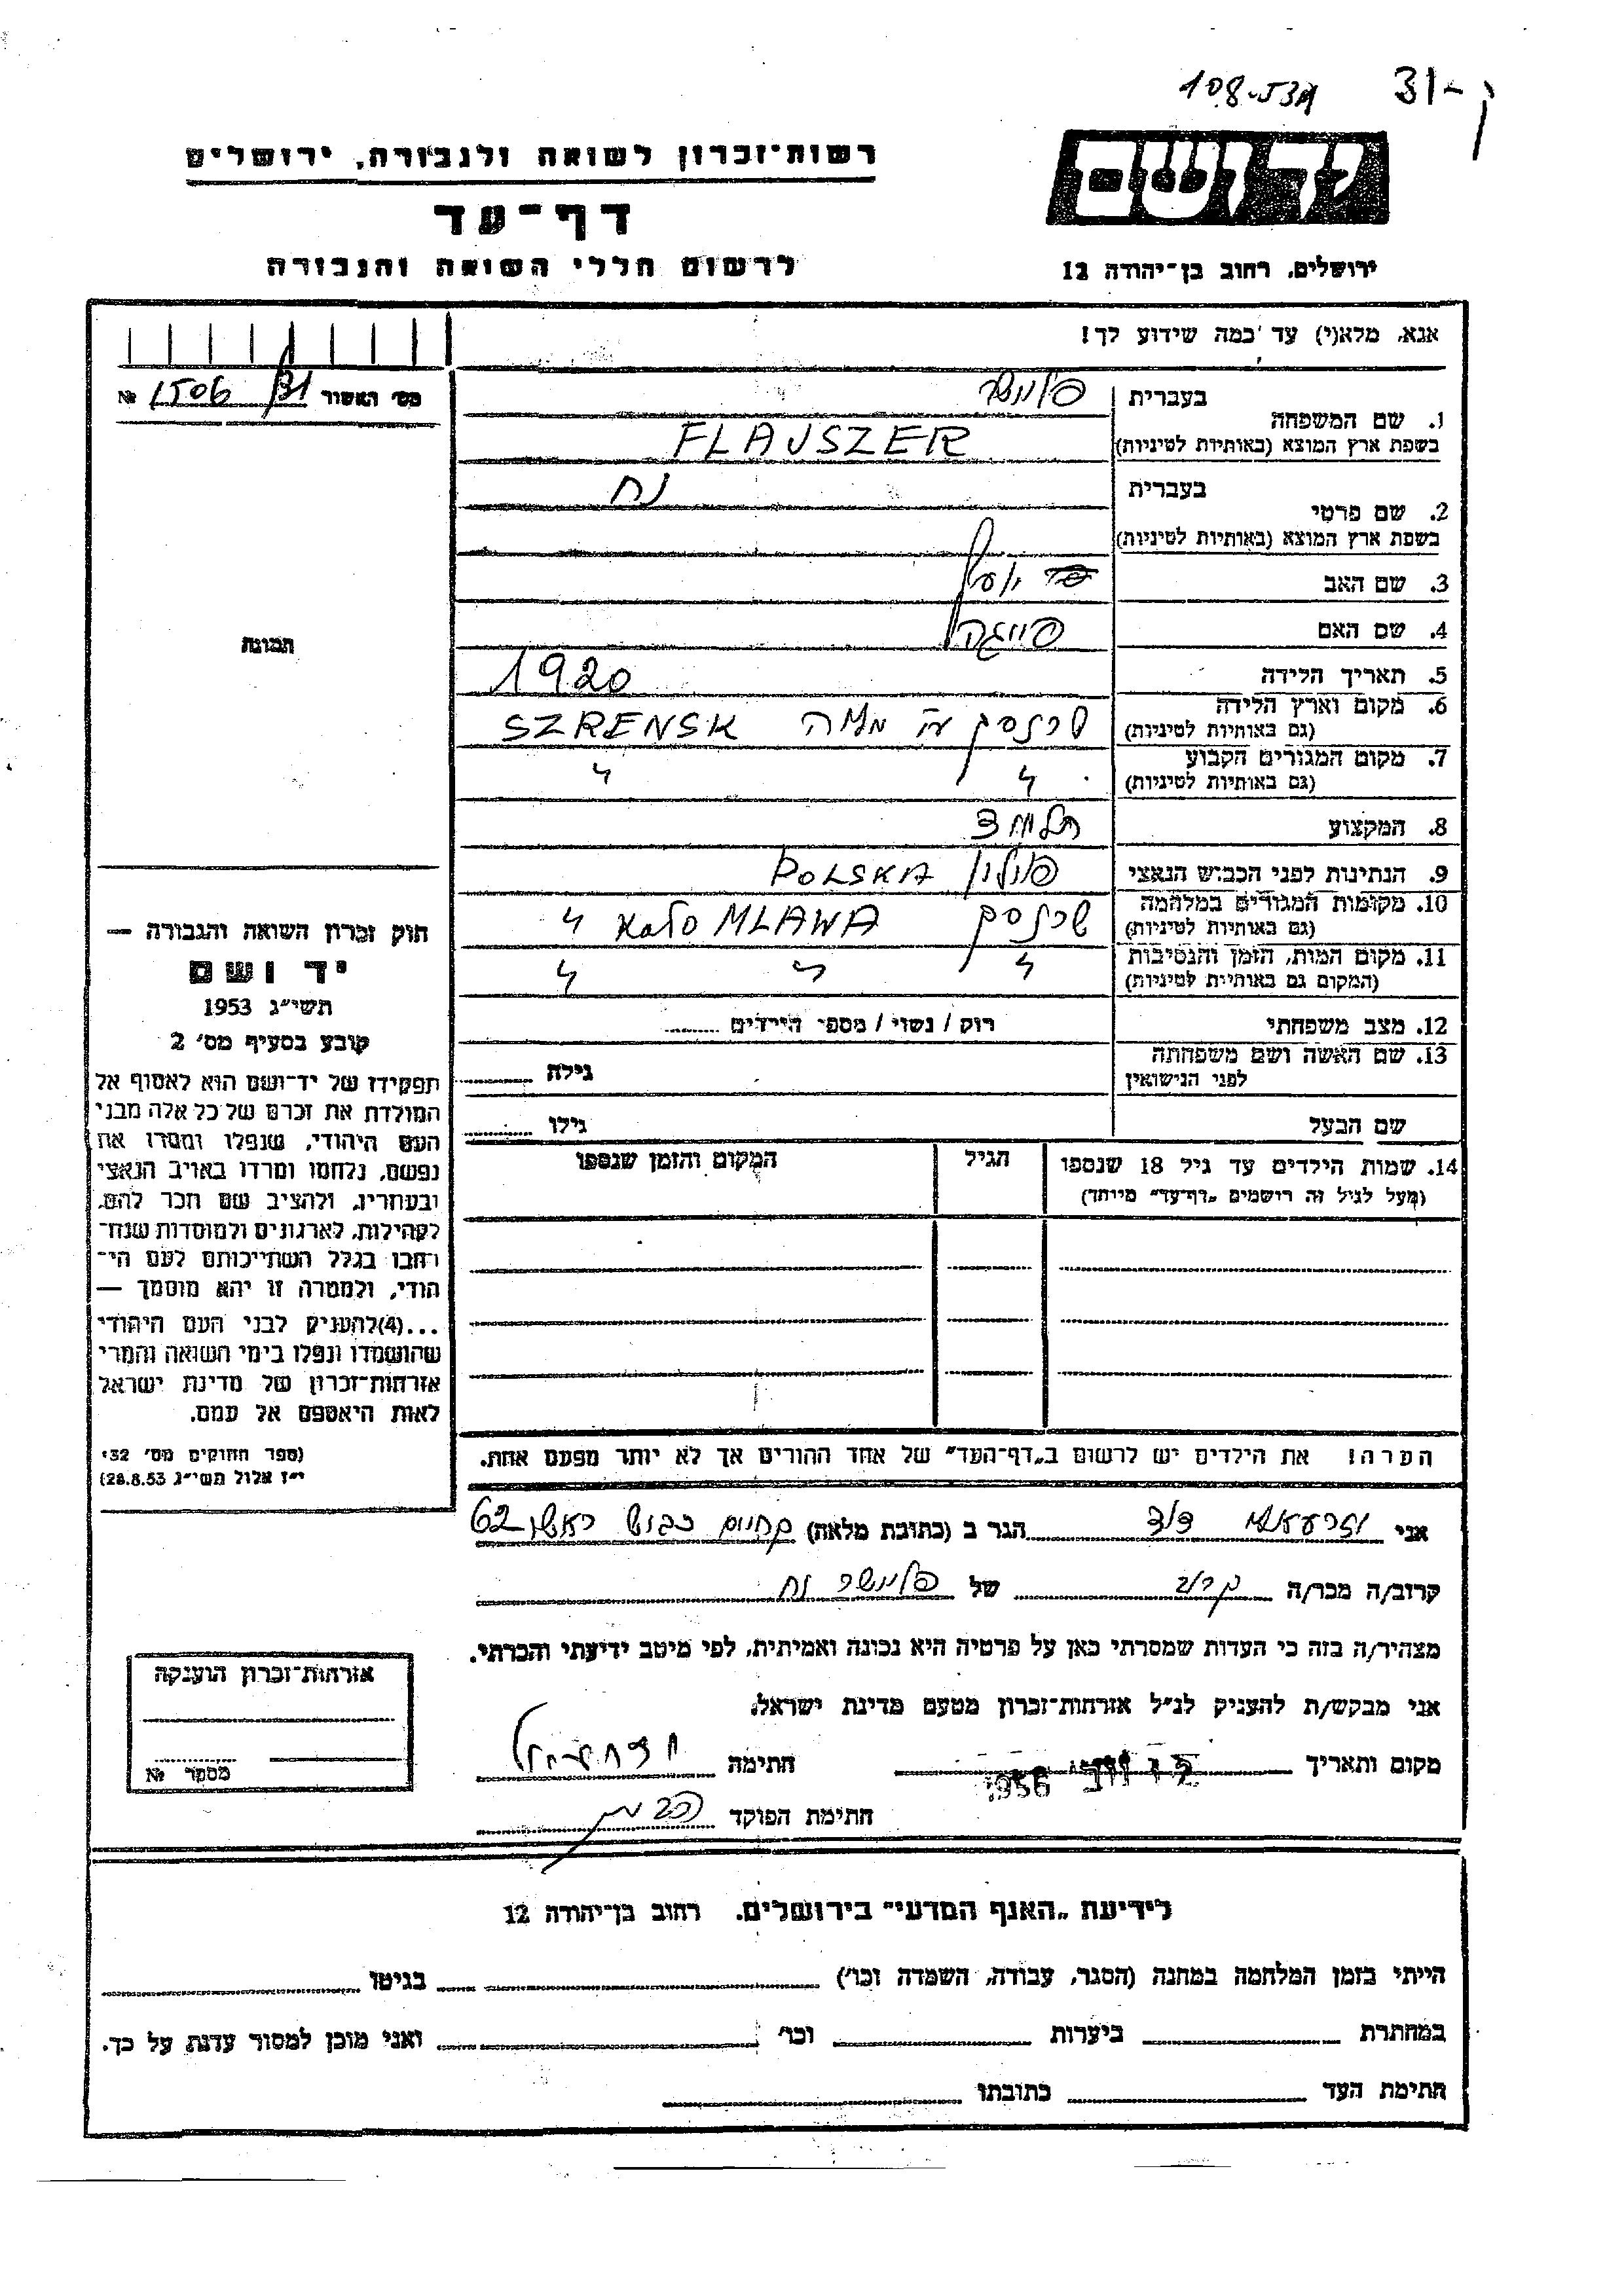 108-531 31-
רשות-זכרון לשואה ולגבורה, ירושלים
יד ושם
דף-עד
לרשום חללי השואה והגבורה
ירושלים, רחוב בן-יהודה 12
אנא, מלא(י) עד כמה שידוע לך!
מס׳ האשור 1506 №
תמונה
חוק זכרון השואה והגבורה —
יד ושם
תשי״ג 1953
קובע בסעיף מס׳ 2
תפקידו של יד-ושם הוא לאסוף אל
המולדת את זכרם של כל אלה מבני
העם היהודי, שנפלו ומסרו את
נפשם, נלחמו ומרדו באויב הנאצי
ובעוזריו, ולהציב שם וזכר להם,
לקהילות, לארגונים ולמוסדות שנח-
רבו בגלל השתייכותם לעם הי-
הודי, ולמטרה זו יהא מוסמך —
...(4)להעניק לבני העם היהודי
שהושמדו ונפלו בימי השואה והמרי
אזרחות-זכרון של מדינת ישראל
לאות היאספם אל עמם.
(ספר החוקים מס׳ 132
י״ז אלול תשי״ג 28.8.53)
1. שם המשפחה
בעברית פלוישר
בשפת ארץ המוצא (באותיות לטיניות) FLAUSZER
2. שם פרטי
בעברית נח
בשפת ארץ המוצא (באותיות לטיניות)
3. שם האב יוסף
4. שם האם פייגה
5. תאריך הלידה 1920
6. מקום וארץ הלידה
(גם באותיות לטיניות) שרנסק SZRENSK
7. מקום המגורים הקבוע
(גם באותיות לטיניות) " "
8. המקצוע תלמיד
9. הנתינות לפני הכבוש הנאצי פולין POLSKA
10. מקומות המגורים במלחמה
(גם באותיות לטיניות) שרנסק MLAWA מלאווא "
11. מקום המות, הזמן והנסיבות
(המקום גם באותיות לטיניות) " " "
12. מצב משפחתי רוק / נשוי / מספר הילדים
13. שם האשה ושם משפחתה
לפני הנישואין גילה
שם הבעל גילו
14. שמות הילדים עד גיל 18 שנספו הגיל המקום והזמן שנספו
(מעל לגיל זה רושמים „דף-עד״ מיוחד)
הערה! את הילדים יש לרשום ב„דף-העד״ של אחד ההורים אך לא יותר מפעם אחת.
אני דוד הגר ב (כתובת מלאה) 62
קרוב/ה מכר/ה קרוב של פלוישר נח
מצהיר/ה בזה כי העדות שמסרתי כאן על פרטיה היא נכונה ואמיתית, לפי מיטב ידיעתי והכרתי.
אני מבקש/ת להעניק לנ״ל אזרחות-זכרון מטעם מדינת ישראל.
מקום ותאריך 1956 חתימה
חתימת הפוקד
אזרחות-זכרון הוענקה
מספר №
לידיעת „האגף המדעי״ בירושלים. רחוב בן-יהודה 12
הייתי בזמן המלחמה במחנה (הסגר, עבודה, השמדה וכו׳) בגיטו
במחתרת ביערות וכו׳ ואני מוכן למסור עדות על כך.
חתימת העד כתובתו